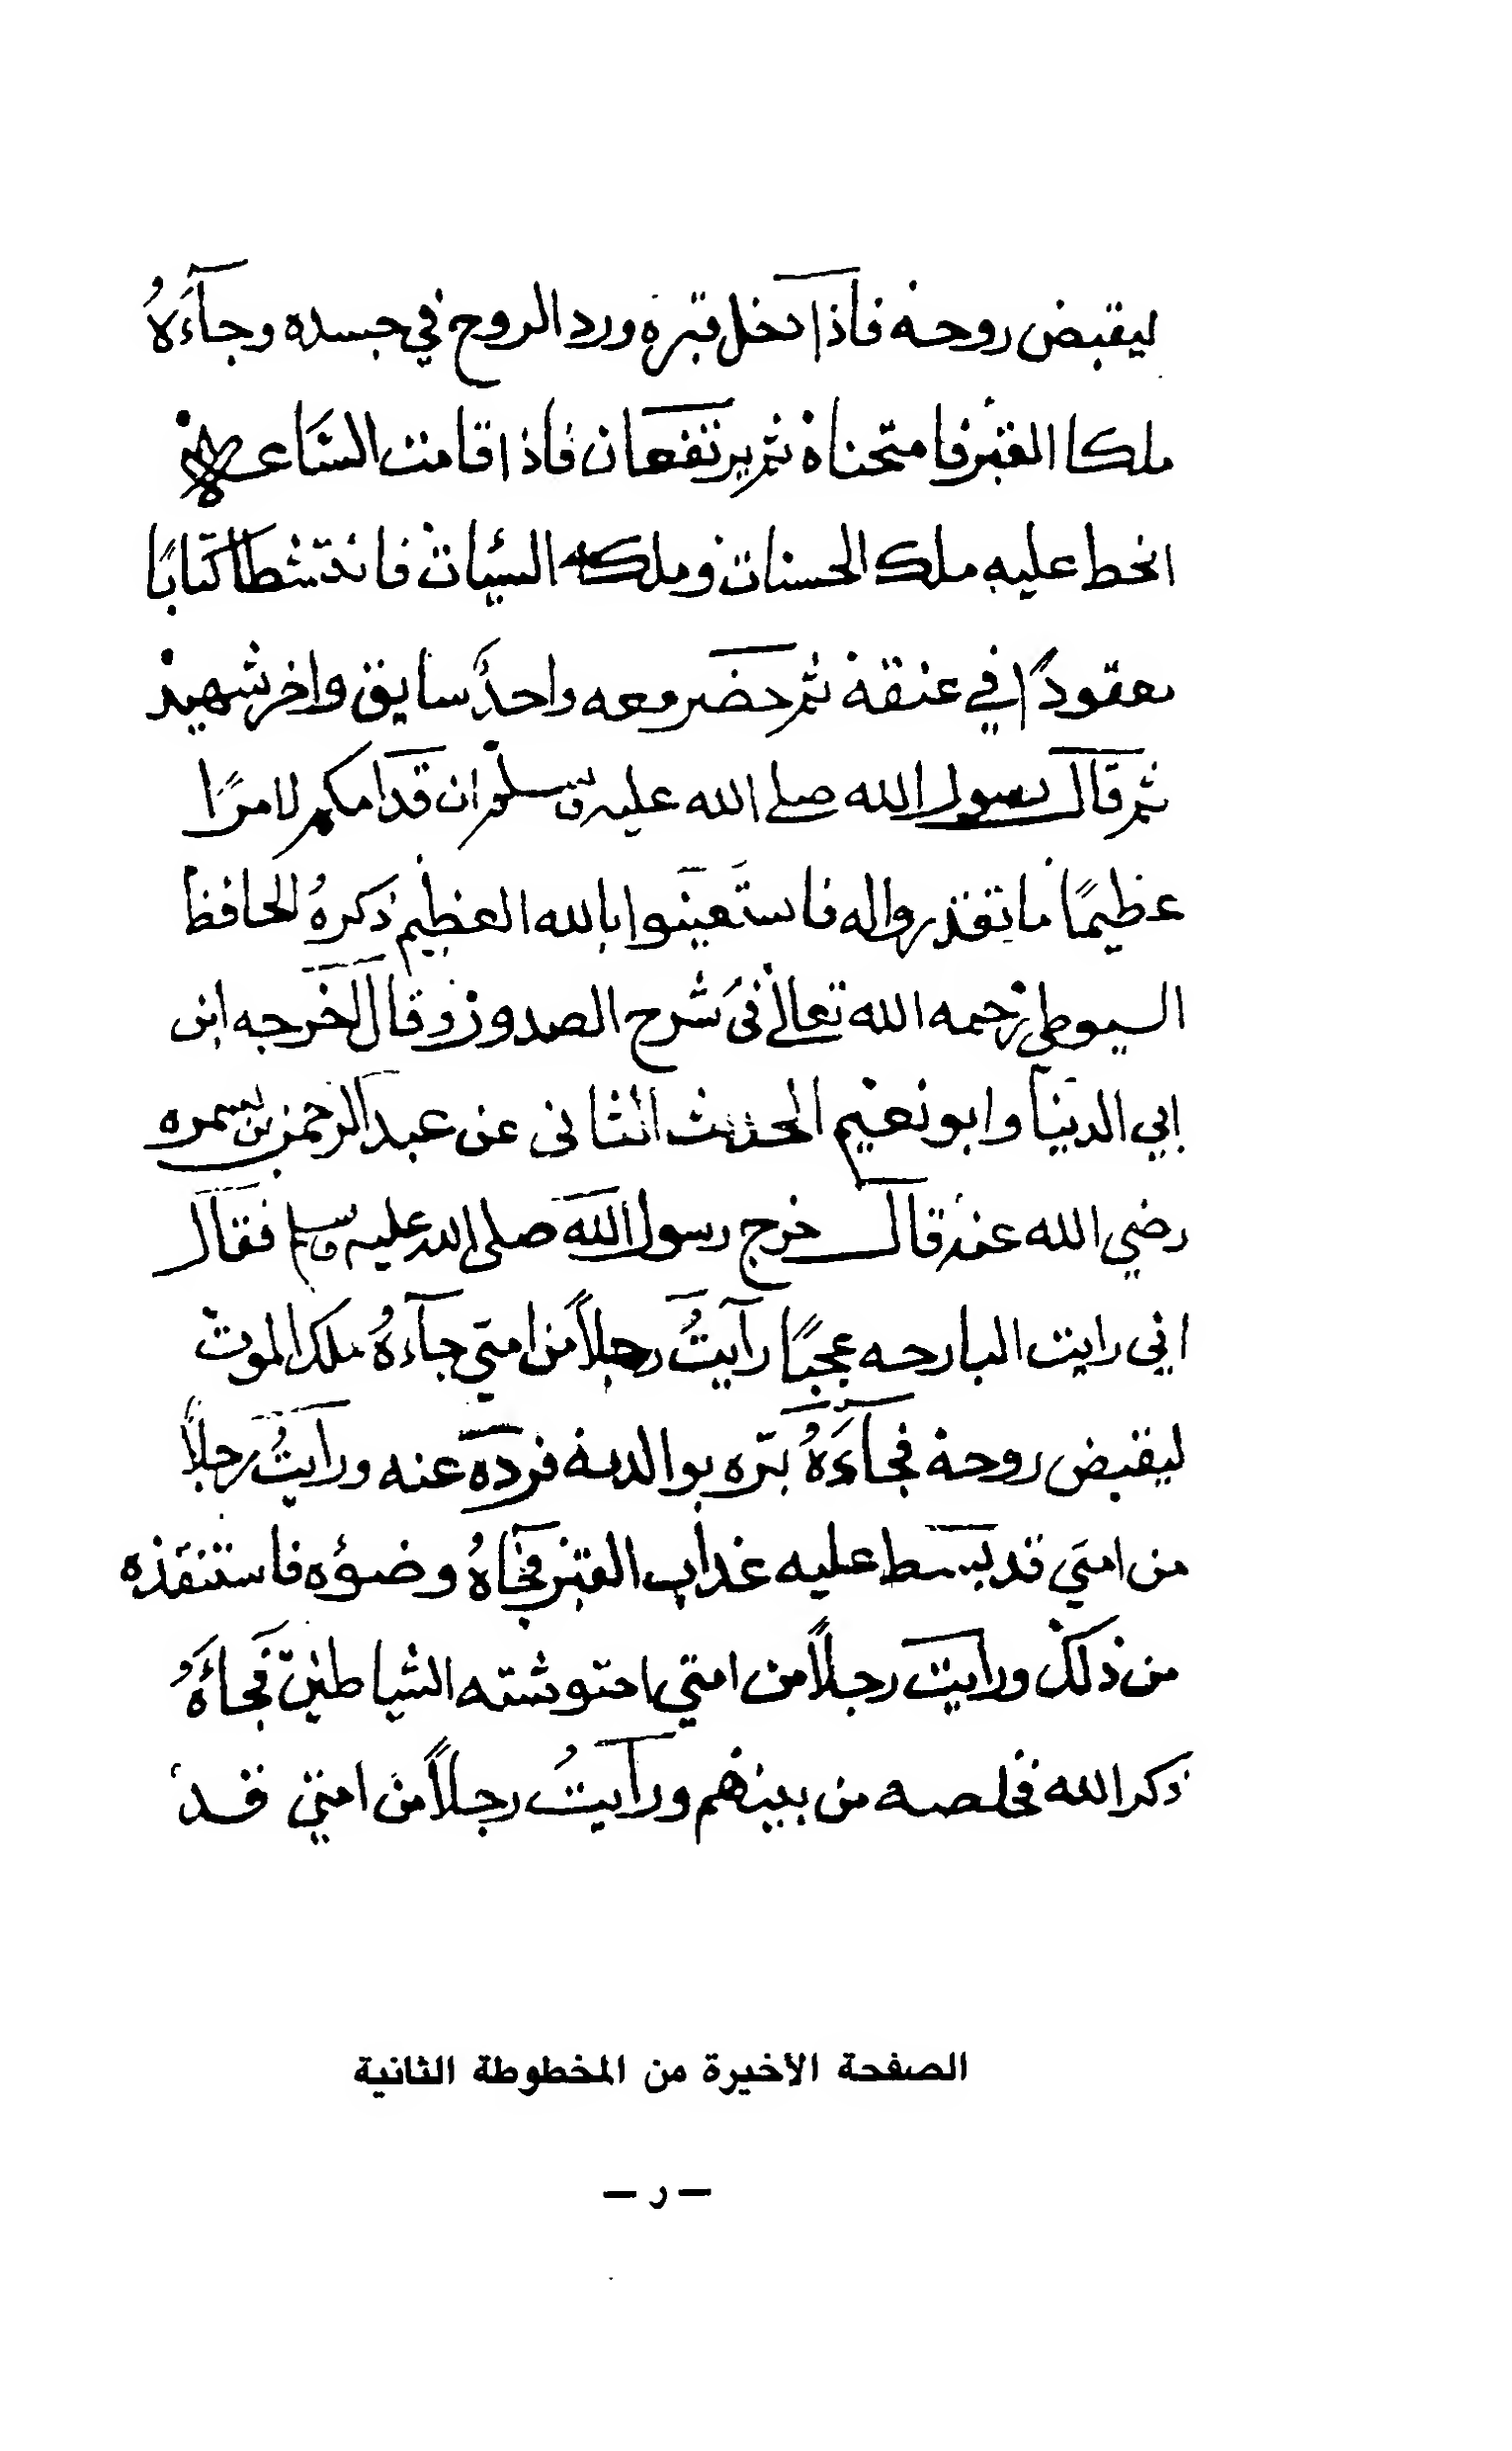 ليقبض روحه فاذا دخل قبره ورد الروح في جسده وجآءَهُ
ملكا القبر فامتحناه ثم يرتفعان فاذا قامت الساعه
انحط عليه ملك الحسنات وملك السيئات فانتشطا كتابًا
معقودًا في عنقه ثم حضر معه واحدٌ سايق واخر شهيد
ثم قال رسول الله صلى الله عليه وسلم ان قدامكم لامرًا
عظيمًا ما تقدروا له فاستعينوا بالله العظيم ذكرهُ الحافظ
السيوطي رحمه الله تعالى في شرح الصدور وقال اخرجه ابن
ابي الدنيا وابو نعيم الحديث الثانى عن عبد الرحمن بن سمره
رضي الله عنه قال خرج رسول الله صلى الله عليه وسلم فقال
اني رايت البارحه عجبًا رآيتُ رجلاً من امتي جآءهُ ملك الموت
ليقبض روحه فجآءَهُ برّه بوالديه فرده عنه ورايتُ رجلاً
من امتي قد بسط عليه عذاب القبر فجاهُ وضوءه فاستنقذه
من ذلك ورايت رجلاً من امتي احتوشته الشياطين فجاءَهُ
ذكر الله فخلصه من بينهم ورآيتُ رجلاً من امتي قد
الصفحة الأخيرة من المخطوطة الثانية
— ر —